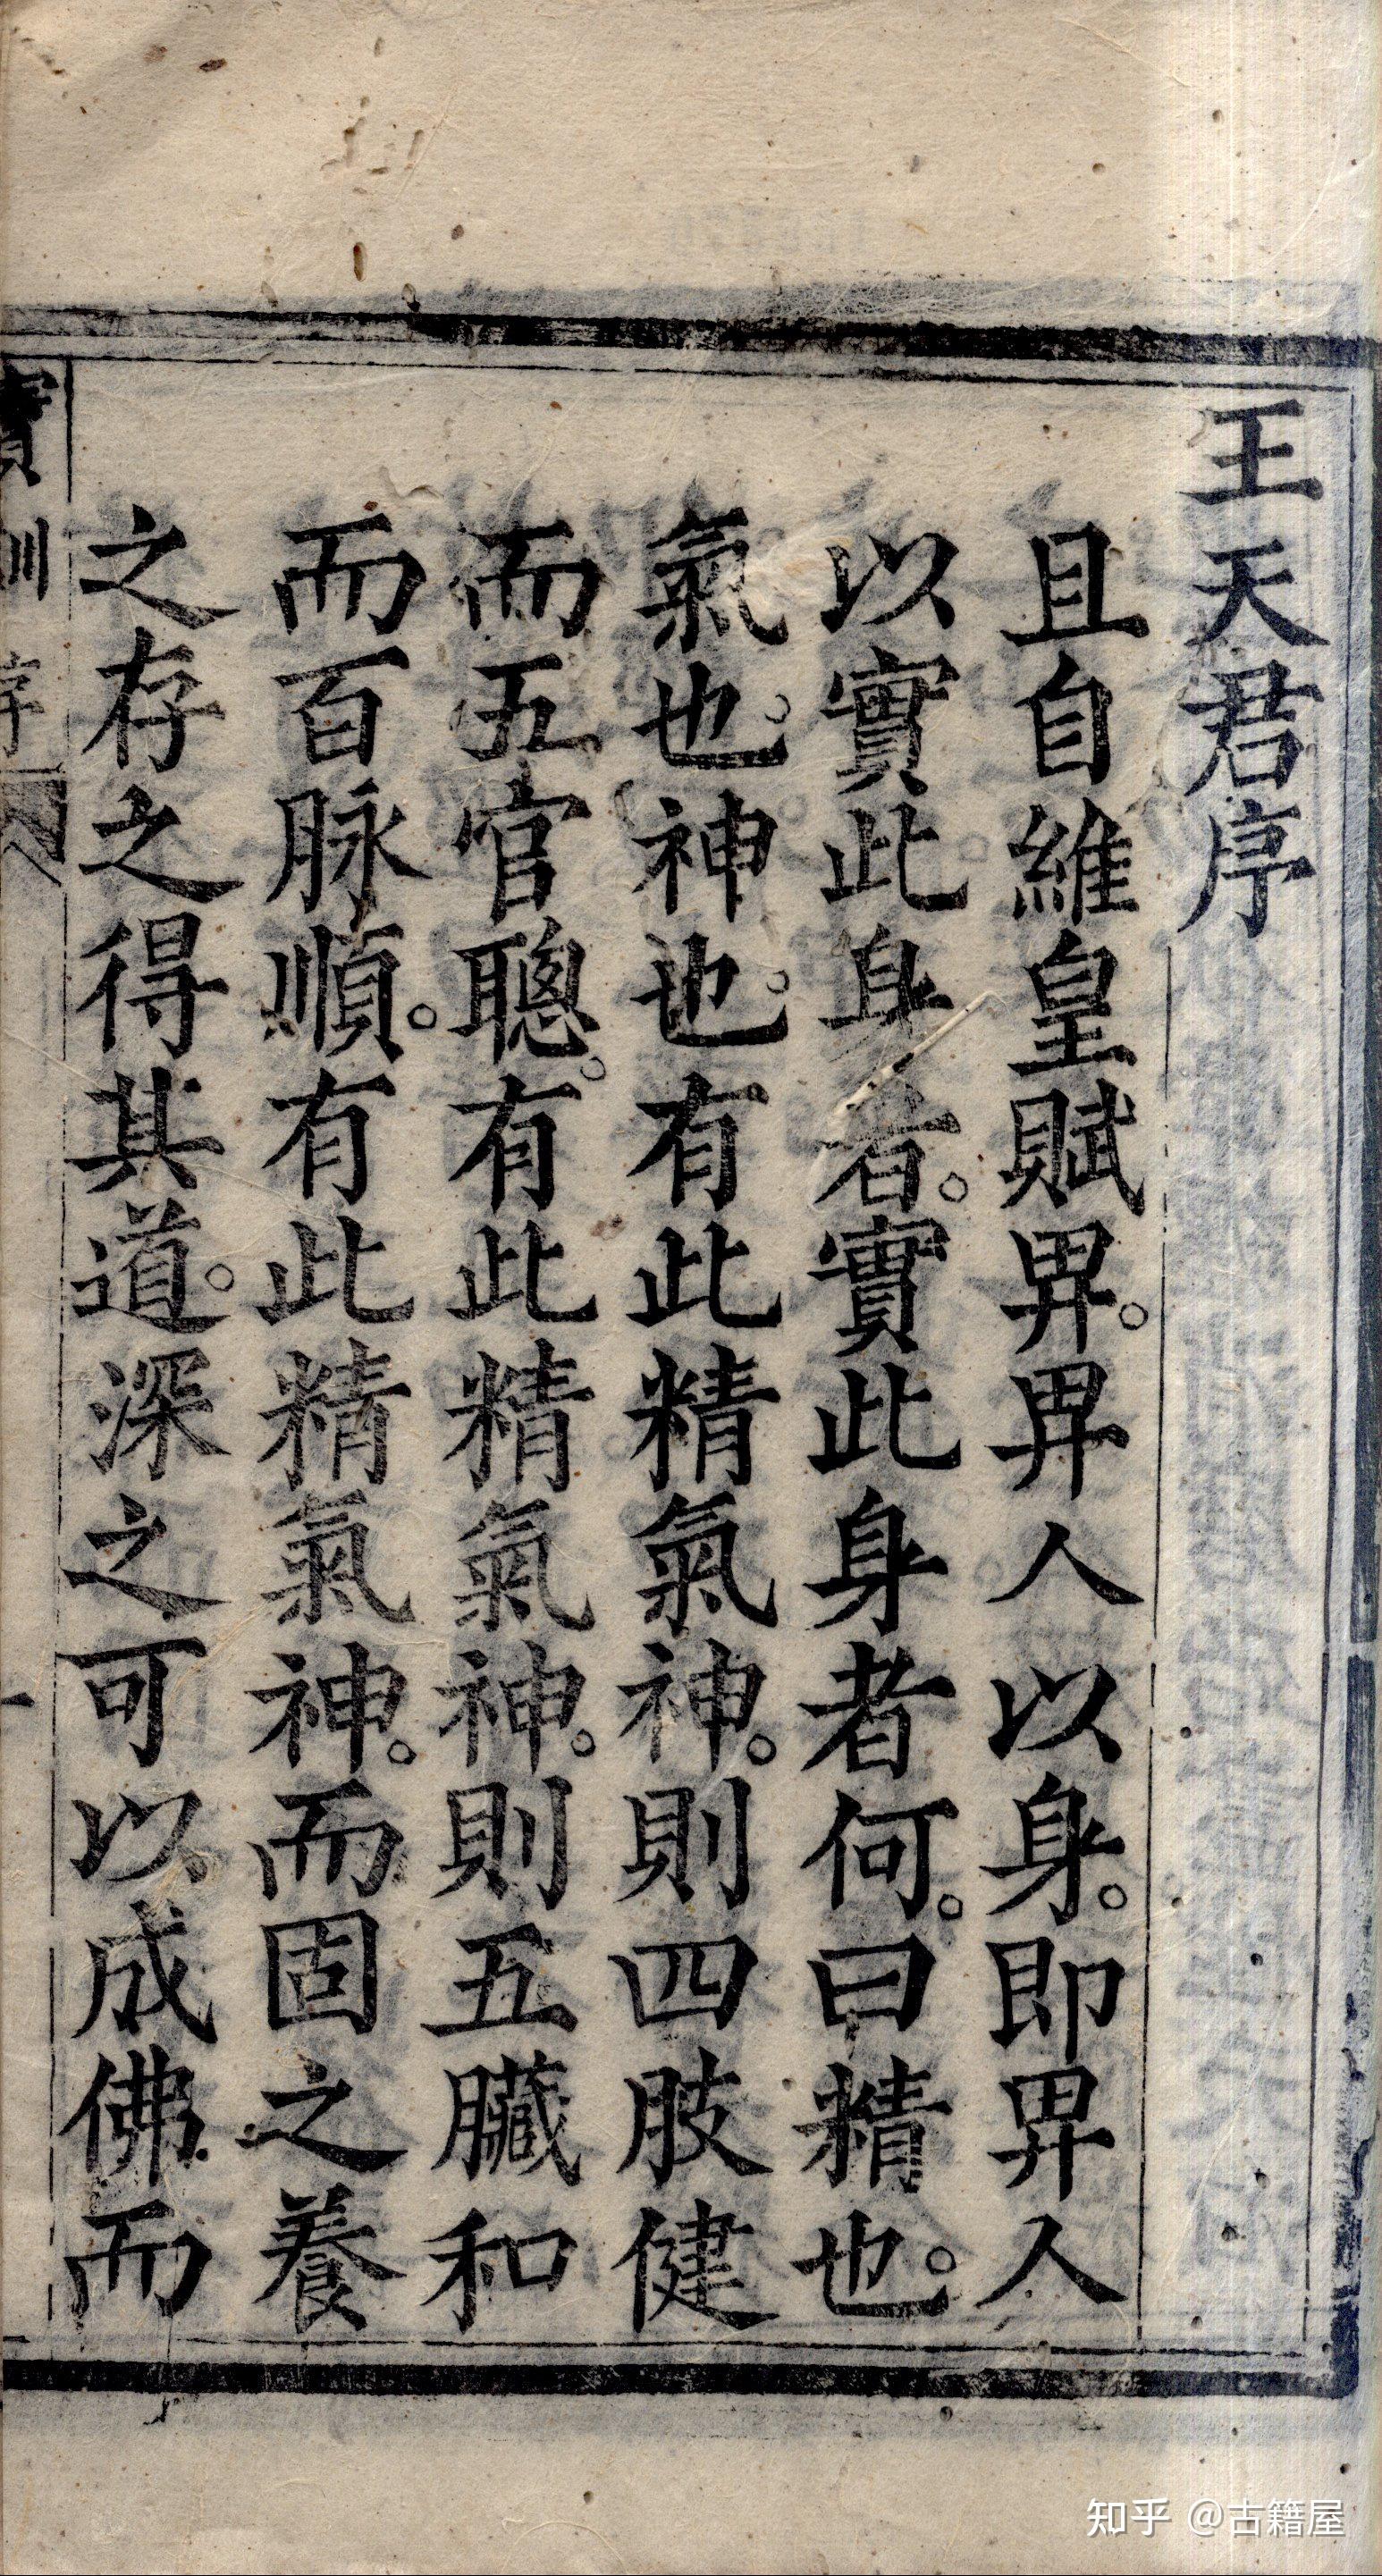 王天君序
且自維皇賦畀。畀人以身。即畀人
以實此身者。實此身者何。曰精也。
氣也。神也。有此精氣神。則四肢健
而五官聰。有此精氣神。則五臟和
而百脉順。有此精氣神。而固之養
之存之得其道。深之可以成佛而
寶訓 序 一
知乎 @古籍屋